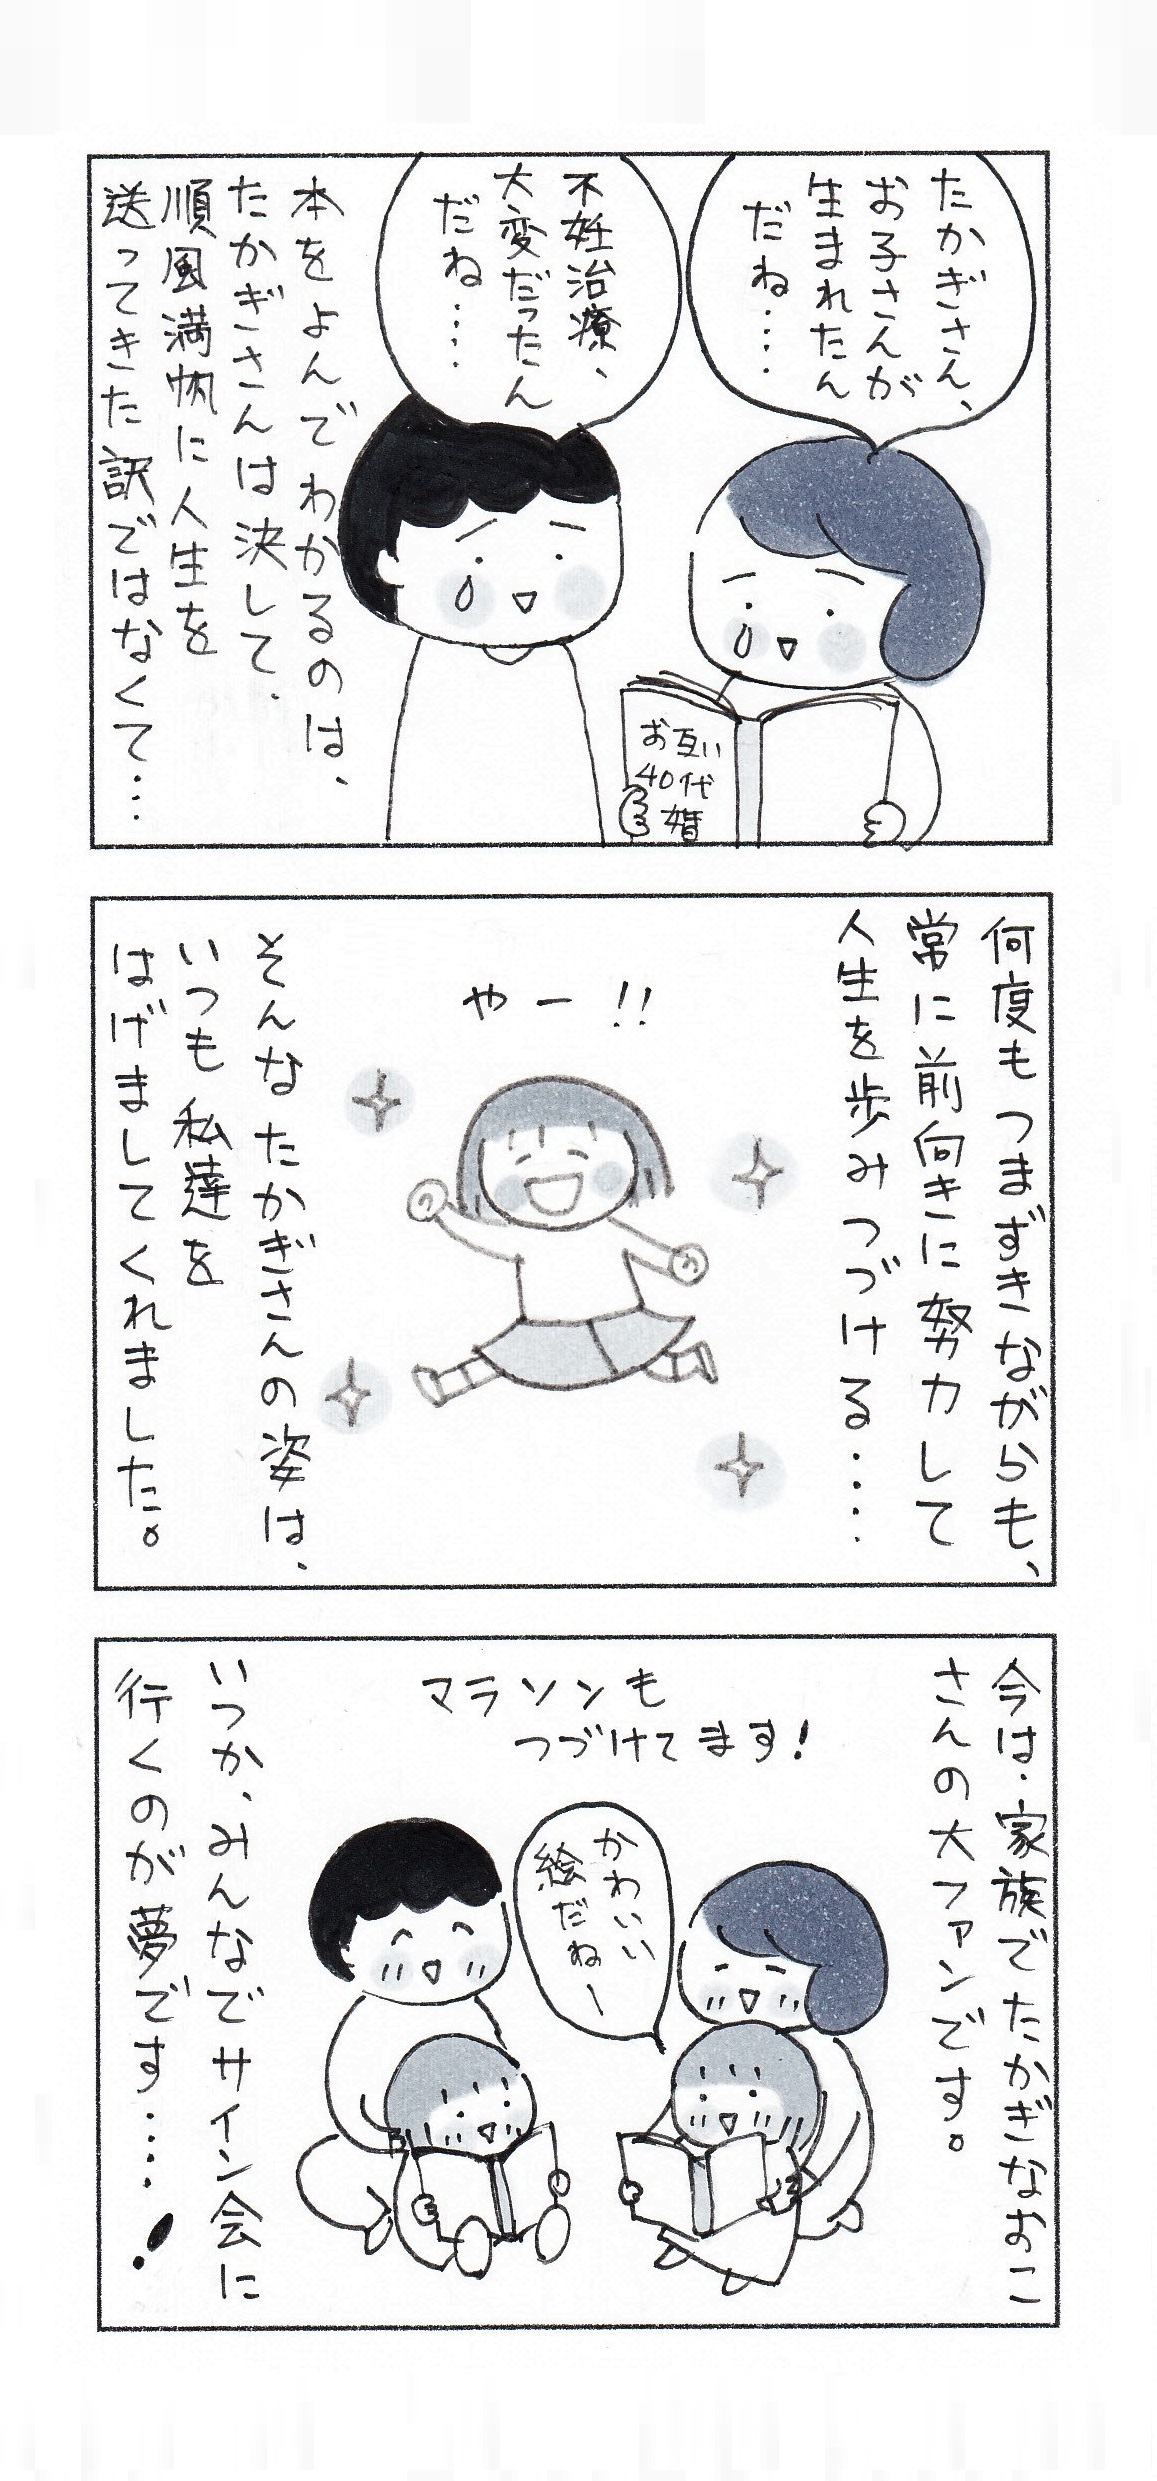 たかぎさん、
お子さんが
生まれたん
だね・・・・
不妊治療、
大変だったん
だね・・・・
お互い
40代
婚
本をよんでわかるのは、
たかぎさんは決して、
順風満帆に人生を
送ってきた訳ではなくて・・・
何度もつまずきながらも、
常に前向きに努力して
人生を歩みつづける・・・・
やー!!
そんなたかぎさんの姿は、
いつも私達を
はげましてくれました。
今は、家族でたかぎなおこ
さんの大ファンです。
マラソンも
つづけてます!
かわいい
絵だねー
いつか、みんなでサイン会に
行くのが夢です・・・・!